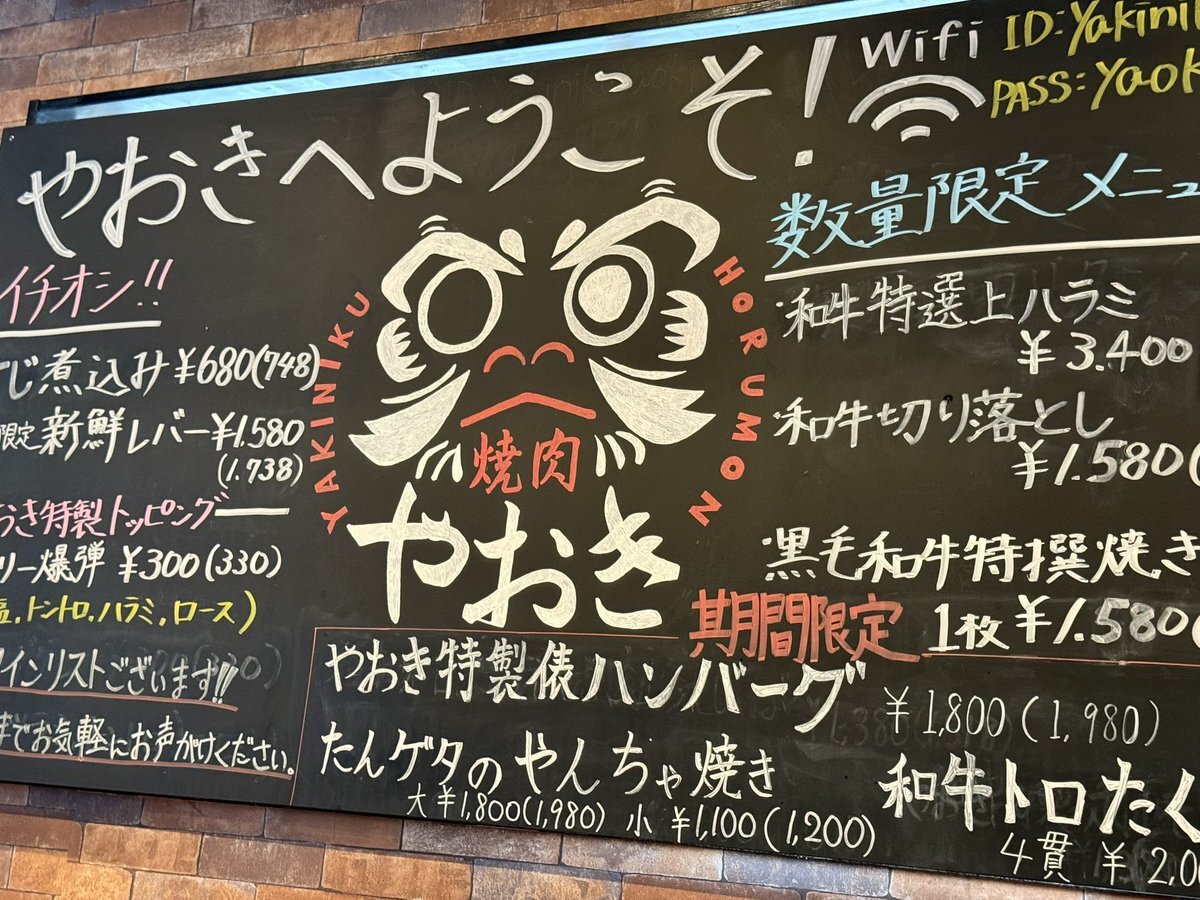 やおきへようこそ!
Wifi
ID:Yakini
PASS:yaok
イチオシ!!
じ煮込み ¥680(748)
限定 新鮮レバー ¥1.580
(1.738)
おき特製トッピング
リー爆弾 ¥300(330)
塩,トントロ,ハラミ,ロース)
インリストございます!!
までお気軽にお声がけください。
YAKINIKU
HORUMON
焼肉
やおき
数量限定メニュ
・和牛特選上ハラミ
¥3.400
・和牛切り落とし
¥1.580(
・黒毛和牛特撰焼き
期間限定 1枚 ¥1.580(
やおき特製俵ハンバーグ
¥1,800(1,980)
たんゲタのやんちゃ焼き
大 ¥1,800(1,980) 小 ¥1,100(1,200)
和牛トロたく
4貫 ¥2,0